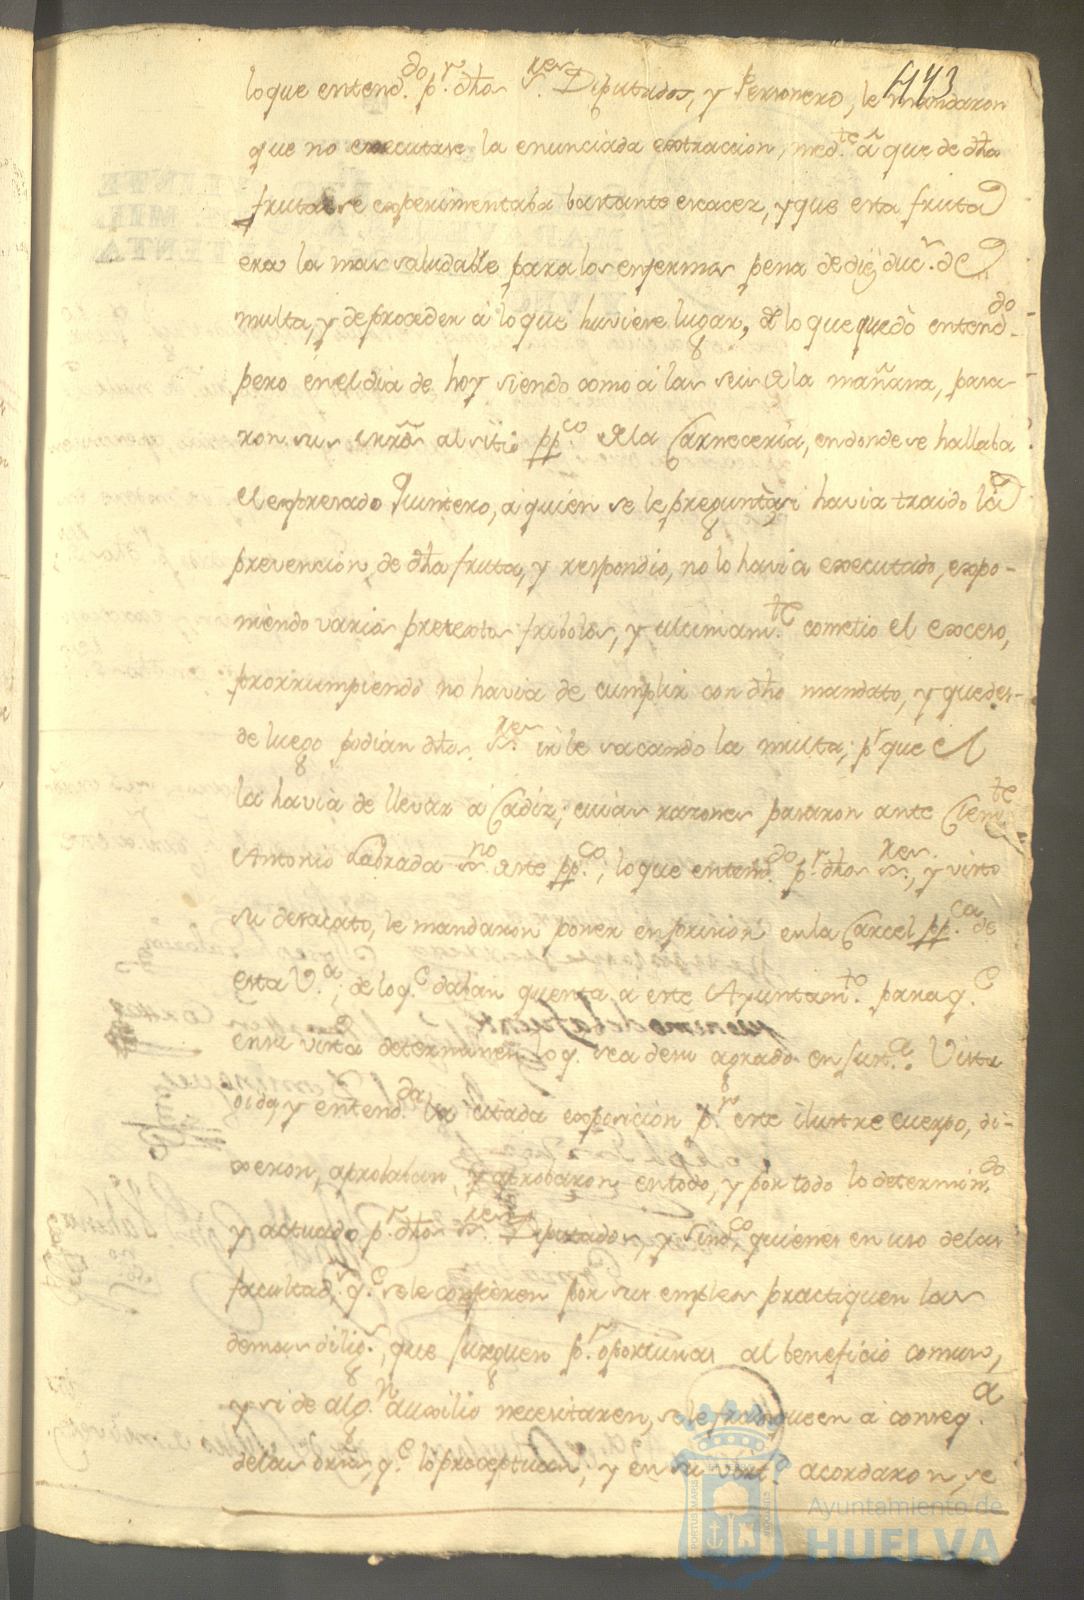 443
lo que entend.do p.r dhos S.res Diputados, y Personero, le mandaron
que no executase la enunciada extraccion, med.te â que de dha
fruta se experimentaba bastante escacez, y que esta fruta
era la mas saludable para los enfermos pena de diez duc.s de
multa, y de proceder â lo que huviese lugar, de lo que quedô entend.do
pero en el dia de hoy siendo como â las seis de la mañana, pasa-
ron sus mrds al sitio pp.co de la Carneceria, en donde se hallaba
el expresado Quintero, a quien se le preguntò si havia traido la
prevencion de dha fruta, y respondio, no lo havia executado, expo-
niendo varios pretextos fribolos, y ultimam.te cometio el exceso,
prorrumpiendo no havia de cumplir con dho mandato, y que des-
de luego podian dhos S.res irle sacando la multa, p.r que el
la havia de llevar â Cadiz; cuias razones pasaron ante Clem.te
Antonio Labrada ss.no de este pp.co; lo que entend.do p.r dhos S.res, y visto
su desacato, le mandaron poner en prision en la Carcel pp.ca de
esta V.a; de lo q.e daban quenta a este Ayuntam.to para q.e
en su vista determinen lo q. sea de su agrado en just.a. Vista
oida, y entend.da la citada exposicion p.r este ilustre cuerpo, di-
xeron, aprobaban, y aprobaron en todo, y por todo lo determin.do
y actuado p.r dhos S.res Diputados, y Sind.co, quienes en uso de las
facultad.s q.e se le confieren por sus empleos practiquen las
demas dilig.s, que juzguen p.r oportunas al beneficio comun,
y si de alg.n auxilio necesitaren, se le franqueen a conseq.a
de las ôrns, q.e lo preceptuan, y en su virt.d acordaron, se
PORTUS MARIS
Ayuntamiento de
HUELVA